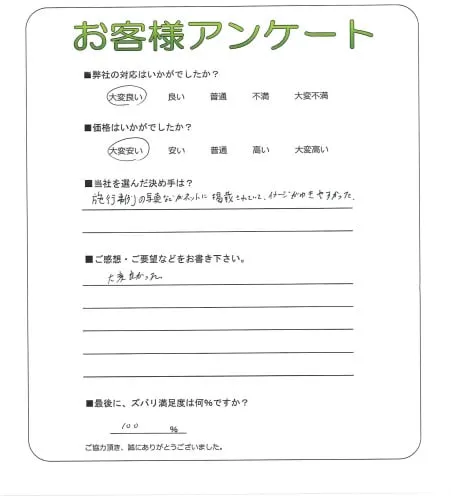 お客様アンケート
■弊社の対応はいかがでしたか？
大変良い 良い 普通 不満 大変不満
■価格はいかがでしたか？
大変安い 安い 普通 高い 大変高い
■当社を選んだ決め手は？
施行事例の写真などがネットに掲載されていて、イメージがわきやすかった。
■ご感想・ご要望などをお書き下さい。
大変良かった。
■最後に、ズバリ満足度は何%ですか？
100 %
ご協力頂き、誠にありがとうございました。